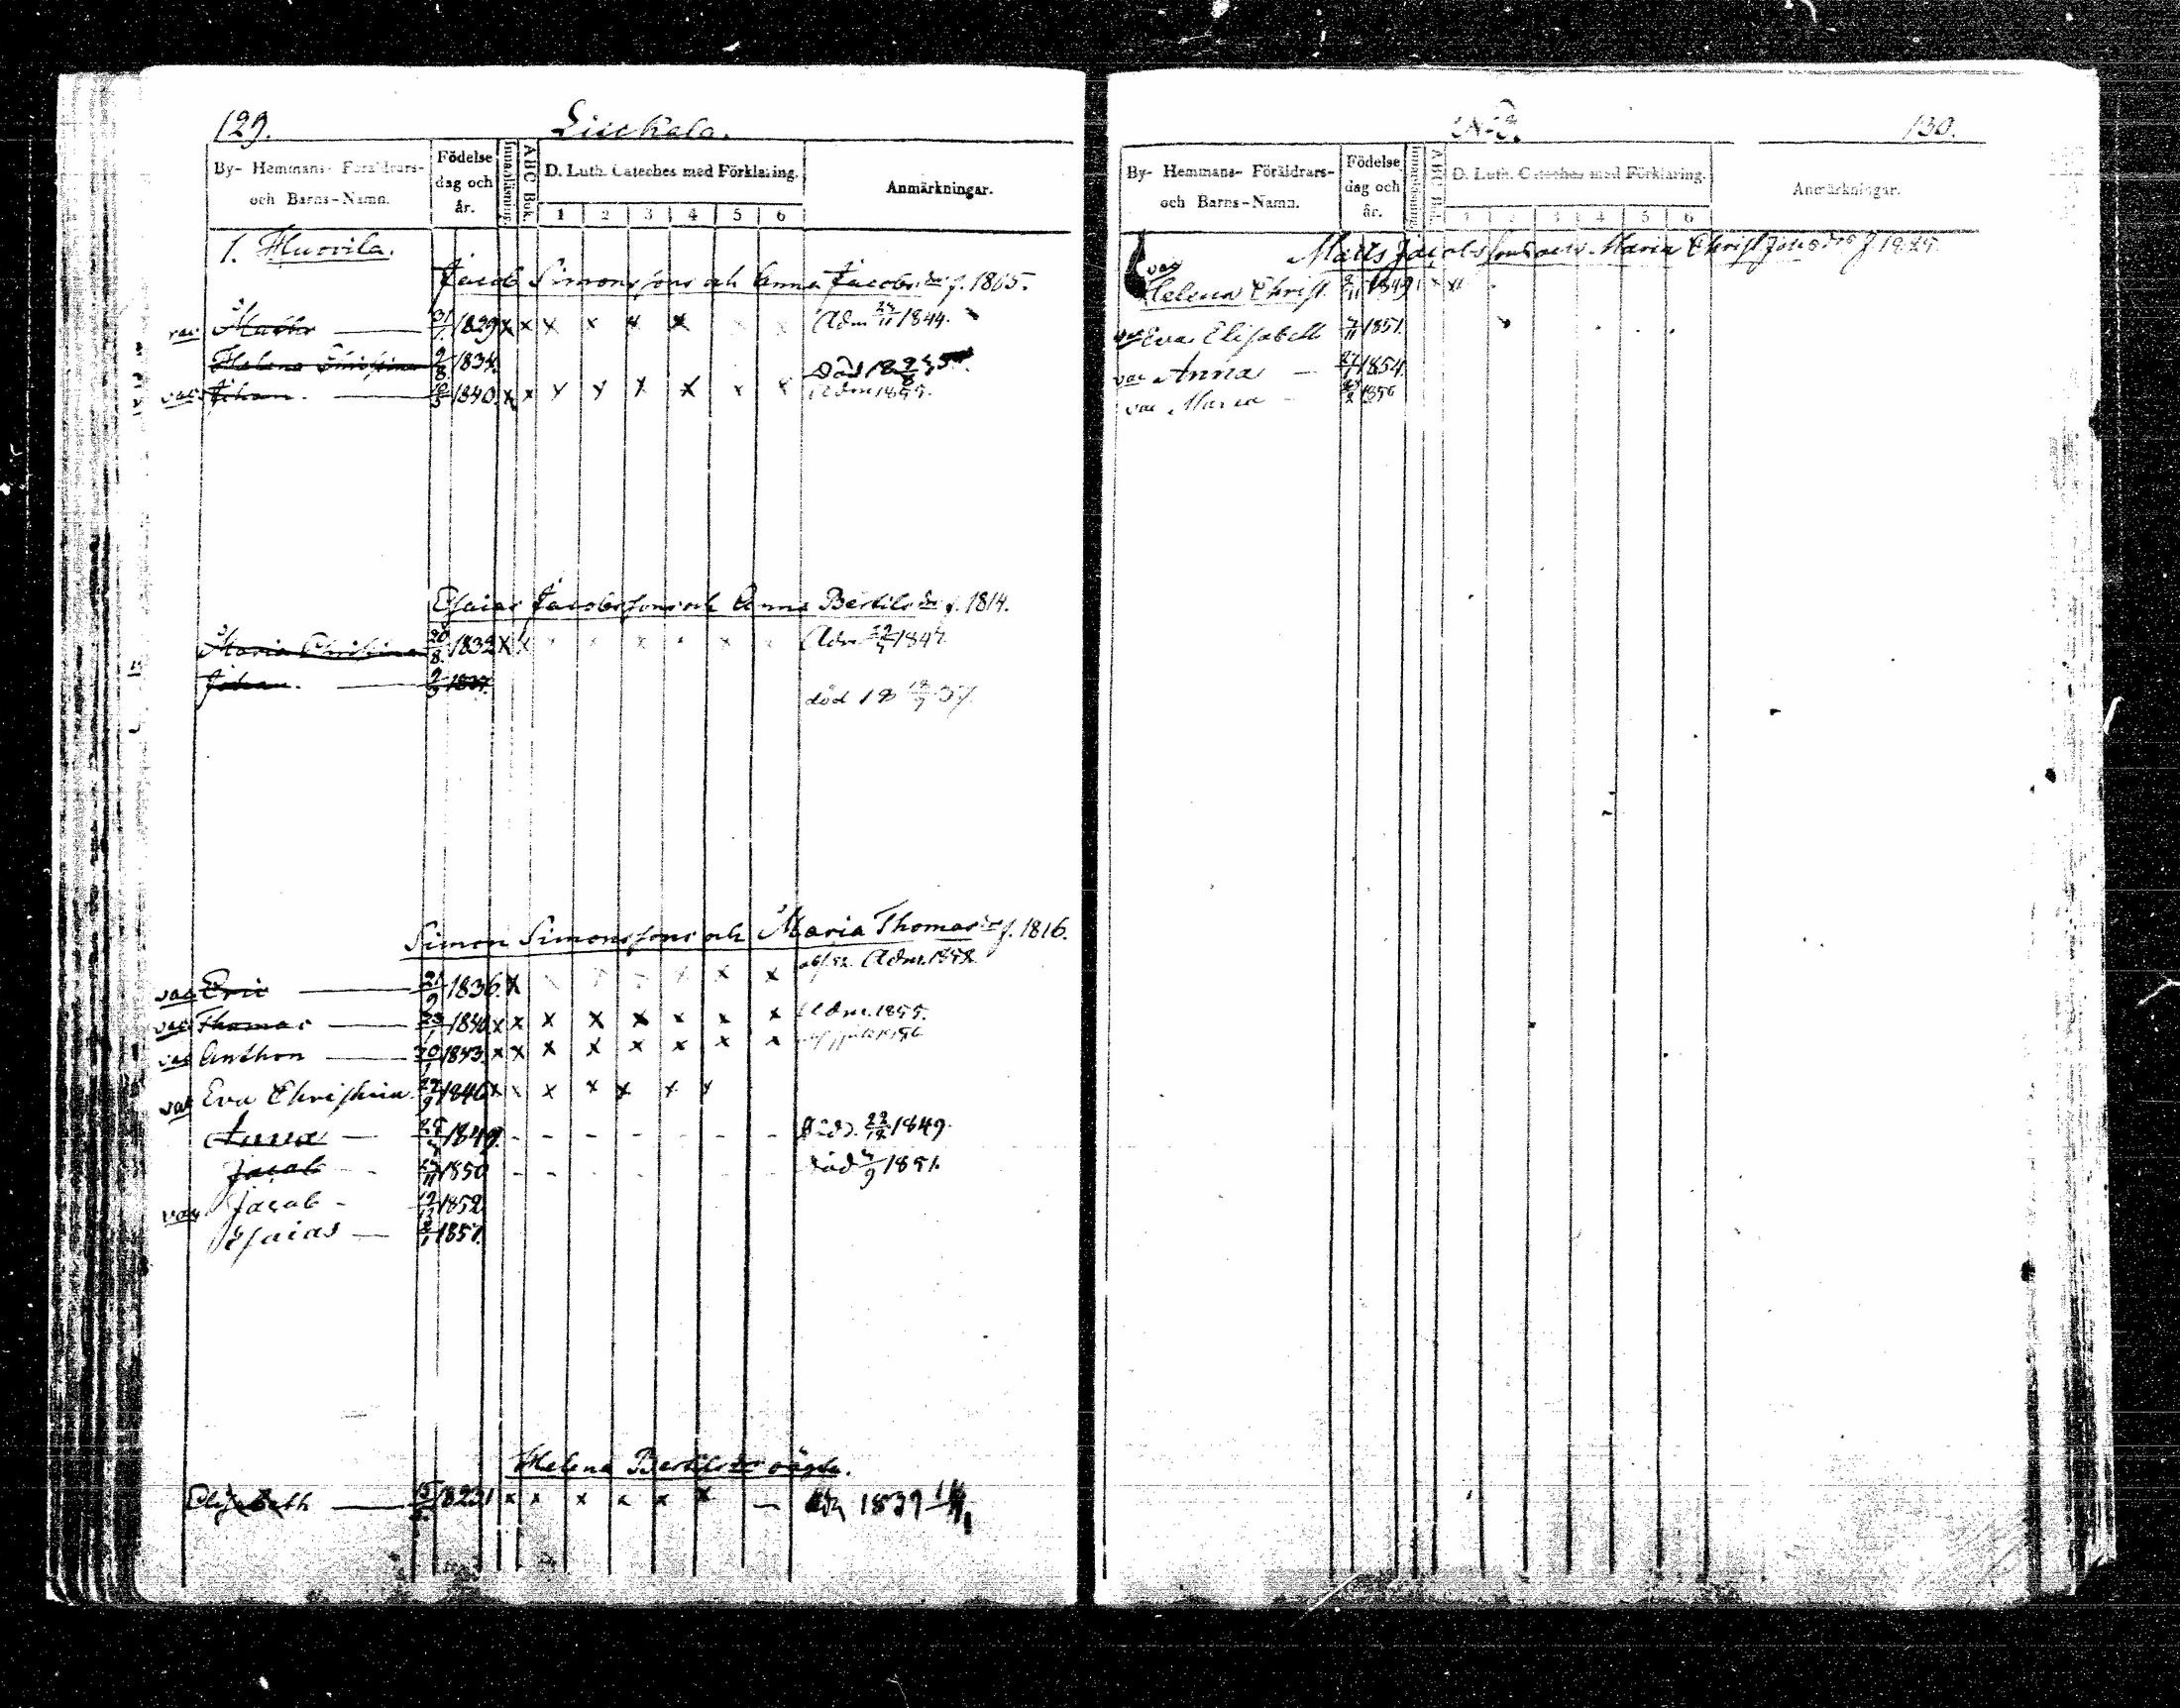 129.
Liuckala.
By- Hemmans- Föräldrars- och Barns-Namn.
Födelse dag och år.
Innanläsning.
ABC Bok.
D. Luth. Cateches med Förklaring.
Anmärkningar.
1 2 3 4 5 6
1. Huovila.
Jacob Simonssons och Anna Jacobsdr f. 1805.
vac Matts 31/1 1829 x x x x x x x x Adm 24/11 1844.
Helena Christina 9/8 1834. Död
vac Johan. 1840. x x x x x x x x Adm 1855.
Esaias Jacobssons och Anna Bertilsdr f. 1814.
Maria Christina 20/8. 1832 x x x x x x x x Adm 1847
Johan. 1837. död 18 37.
Simon Simonssons och Maria Thomasdr f. 1816.
vac Eric 21/9 1836. x x x x x x Adm. 1852.
vac Thomas 23/1 1840 x x x x x x x x Adm. 1855.
vac Anthon 30/1 1843. x x x x x x x x
vac Eva Christina 1846 x x x x x x x
Anna 1849. - - - - - - Död. 22/12 1849.
Jacob 1850 - - - - - död 4/9 1851.
vac Jacob 1852
Esaias 1857.
Helena Bertilsdr oägta.
Elisabeth 1823 x x x x x x — 1839
130.
By- Hemmans- Föräldrars- och Barns-Namn.
Födelse dag och år.
Innanläsning.
ABC Bok.
D. Luth. Cateches med Förklaring.
Anmärkningar.
1 2 3 4 5 6
Matts Jacobssons och Maria Christ f 1825
vac Helena Christ. 1849 x x
vac Eva Elisabeth 7/11 1851.
vac Anna — 1854.
vac Maria - 1856